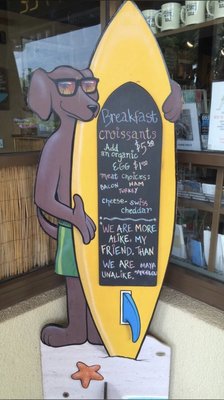 Breakfast
croissants
$5.50
Add
an organic
EGG $1.50
meat choices:
BACON HAM
TURKEY
cheese-swiss
cheddar
"WE ARE MORE
ALIKE, MY
FRIEND, THAN
WE ARE MAYA
UNALIKE." ANGELOU